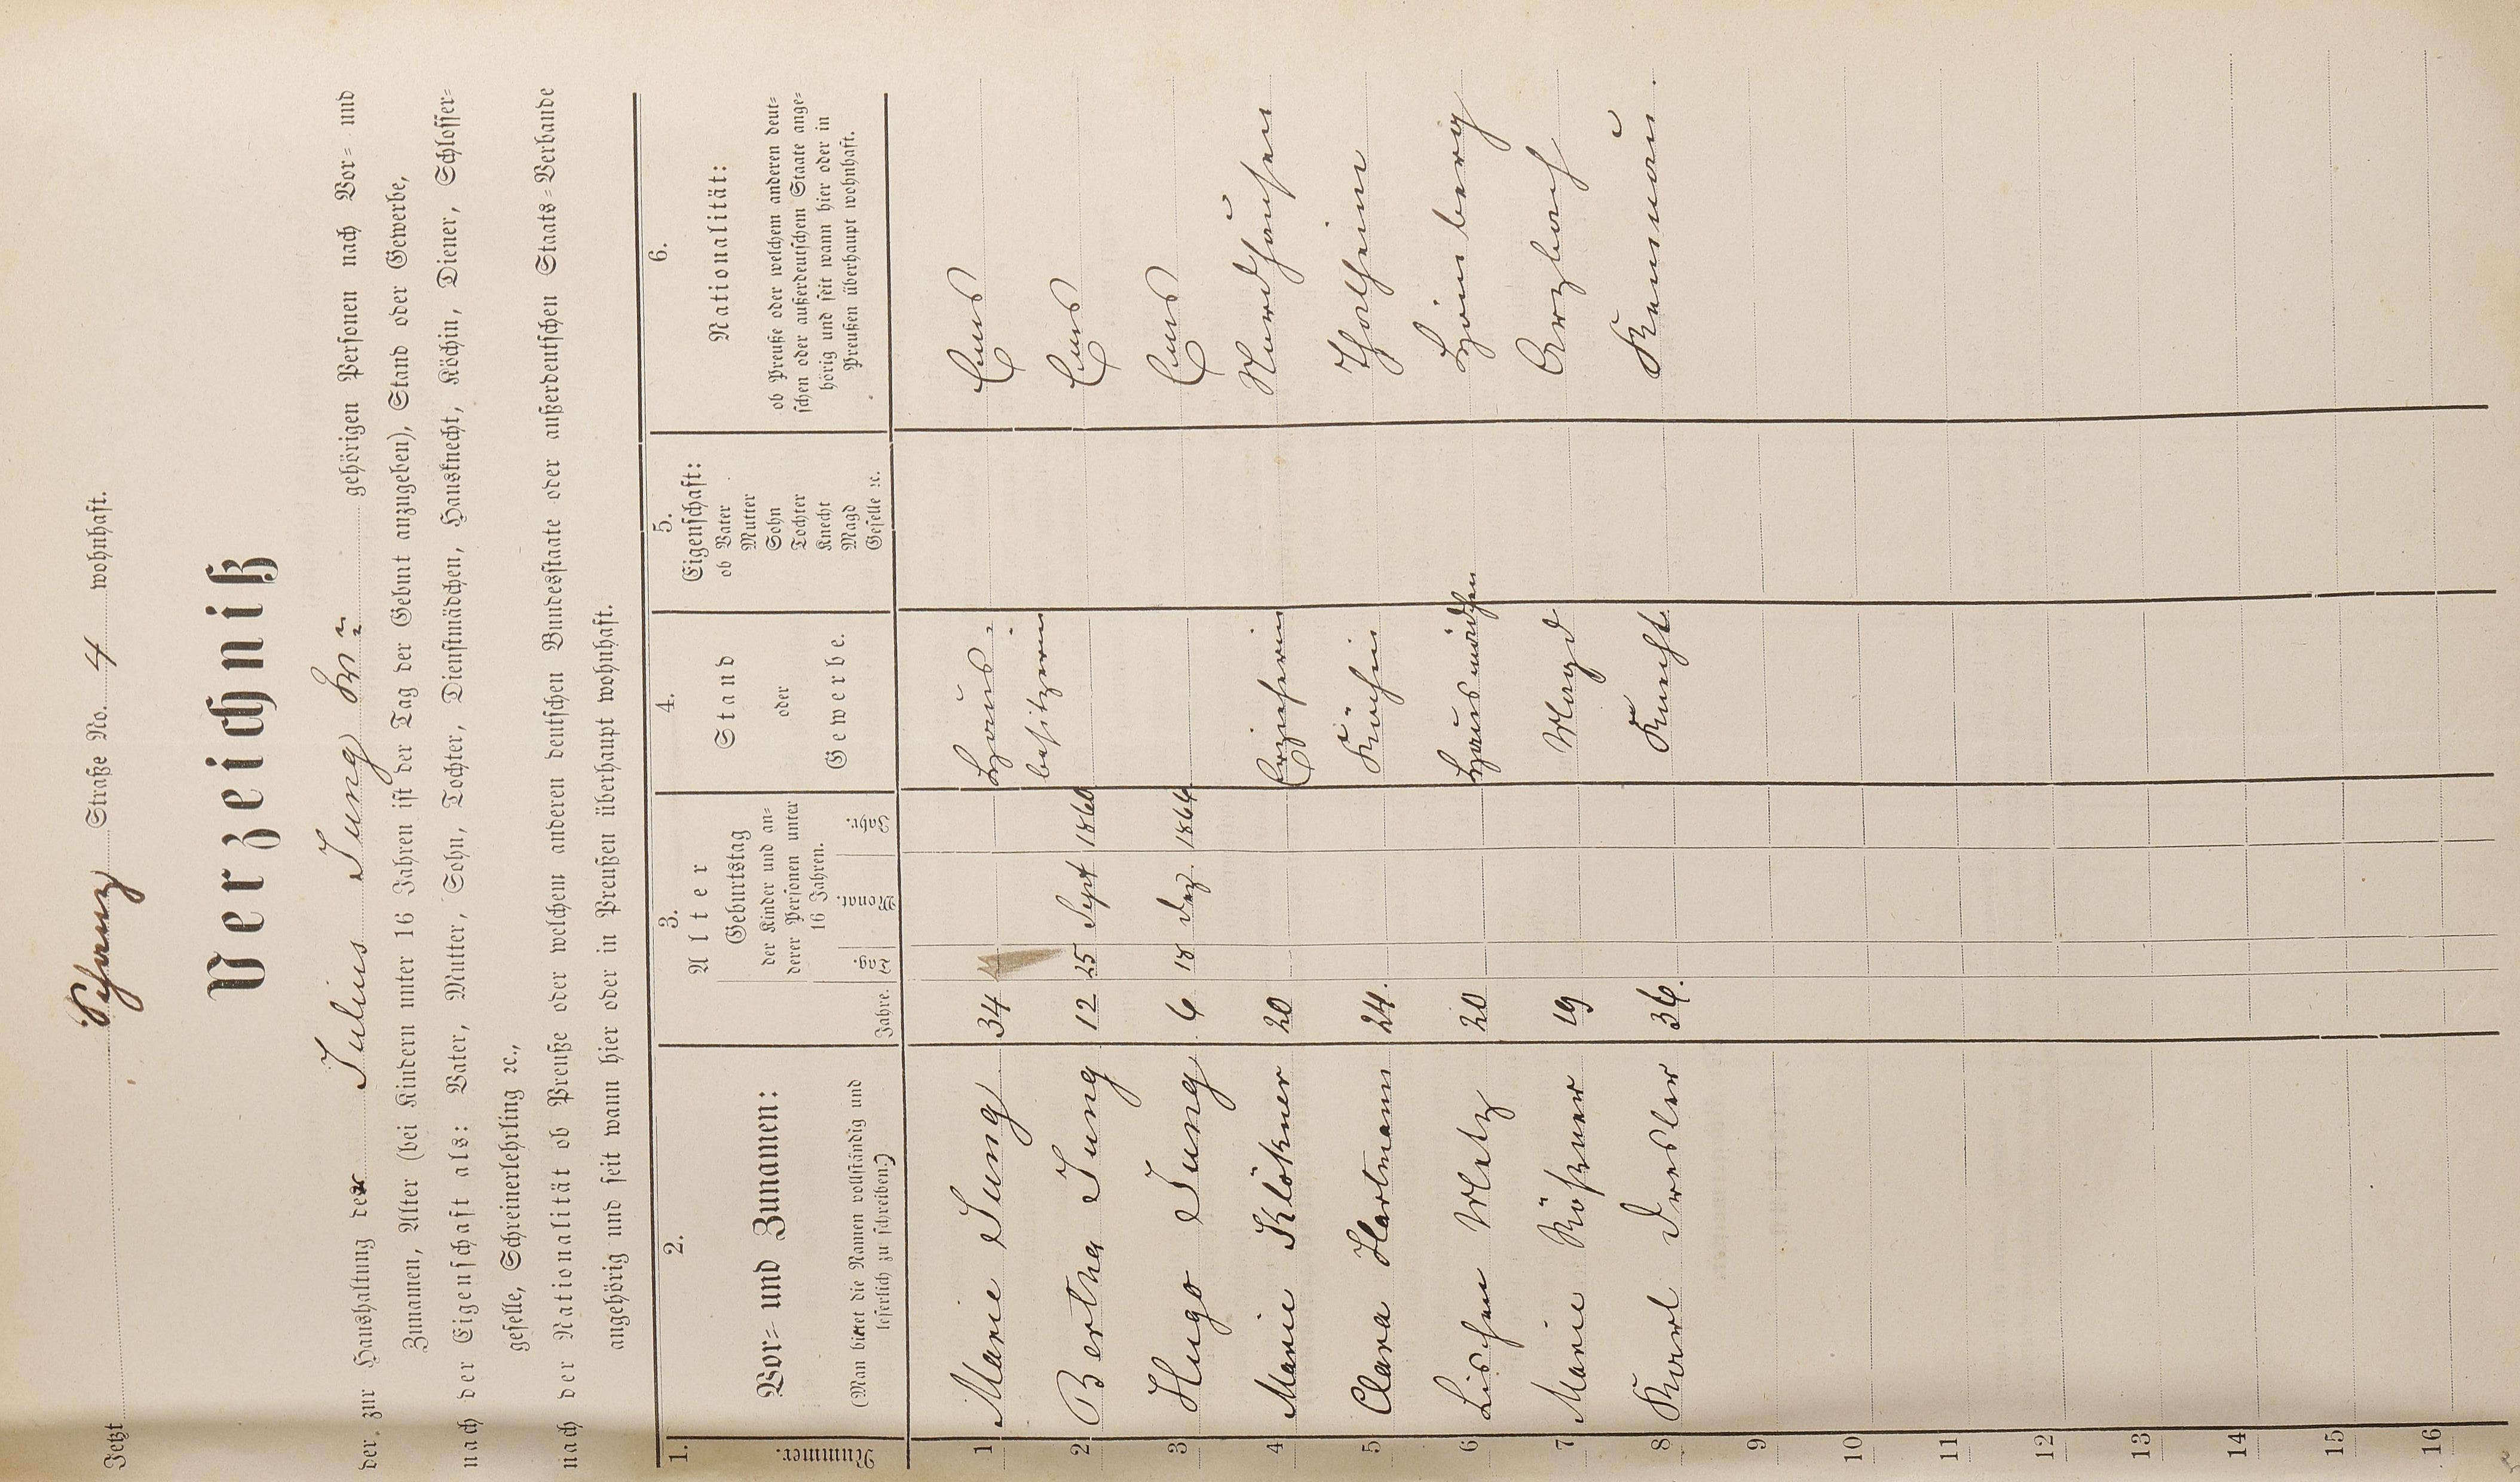 Jetzt Schanz Straße No. 4 wohnhaft.
Verzeichniß
der zur Haushaltung der Julius Jung gehörigen Personen nach Vor- und
Zunamen, Alter (bei Kindern unter 16 Jahren ist der Tag der Geburt anzugeben), Stand oder Gewerbe,
nach der Eigenschaft als: Vater, Mutter, Sohn, Tochter, Dienstmädchen, Hausknecht, Köchin, Diener, Schlosser-
geselle, Schreinerlehrling ꝛc.,
nach der Nationalität ob Preuße oder welchem anderen deutschen Bundesstaate oder außerdeutschen Staats-Verbande
angehörig und seit wann hier oder in Preußen überhaupt wohnhaft.
1.
Nummer.
2.
Vor- und Zunamen:
(Man bittet die Namen vollständig und
leserlich zu schreiben.)
3.
Alter
Jahre.
Geburtstag
der Kinder und an-
derer Personen unter
16 Jahren.
Tag. Monat. Jahr.
4.
Stand
oder
Gewerbe.
5.
Eigenschaft:
ob Vater
Mutter
Sohn
Tochter
Knecht
Magd
Geselle ꝛc.
6.
Nationalität:
ob Preuße oder welchem anderen deut-
schen oder außerdeutschem Staate ange-
hörig und seit wann hier oder in
Preußen überhaupt wohnhaft.
1 Marie Jung 34 Haus- Ems
besitzerin
2 Bertha Jung 12 25 Sept 1860 Ems
3 Hugo Jung 6 18 Dez. 1866 Ems
4 Marie Klökner 20 Erzieherin
5 Clara Hartmann 24. Köchin Thalheim
6 Lischen Metz 20 Hausmädchen Hömberg
7 Marie 19 Magd Arzbach
8 Karl Dresler 36. Knecht Kemmenau
9
10
11
12
13
14
15
16